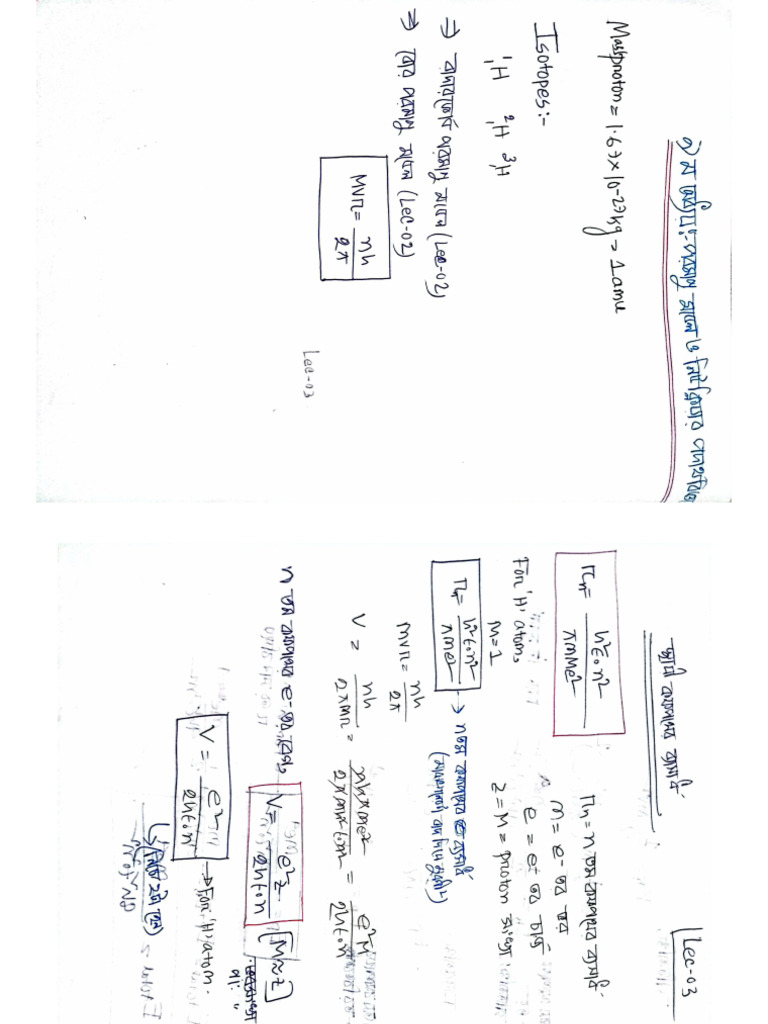 ৯) ম অধ্যায়:- পরমাণু মডেল ও নিউক্লিয়ার পদার্থবিজ্ঞান
Mass proton = 1.67×10-27kg = 1 amu
Isotopes:-
¹₁H ²₁H ³₁H
⇒ রাদারফোর্ড পরমাণু মডেল (Lec-02)
⇒ বোর পরমাণু মডেল (Lec-02)
mvr = nh/2π
Lec-03
Lec-03
স্থায়ী কক্ষপথের ব্যাসার্ধ
rn = h²ε₀n²/πmMe²
rn = n তম কক্ষপথের ব্যাসার্ধ
m = e⁻ এর ভর
e = e⁻ এর চার্জ
z = M = proton সংখ্যা
For 'H' atom,
M=1
rn = h²ε₀n²/πme² → n তম কক্ষপথের ব্যাসার্ধ
mvr = nh/2π
V = nh/2πmr = nh×πme²/2πmh²ε₀n² = e²M/2hε₀n
n তম কক্ষপথে e⁻ এর বেগ,
V = e²z/2hε₀n [M≈z]
V = e²/2hε₀n → For 'H' atom.